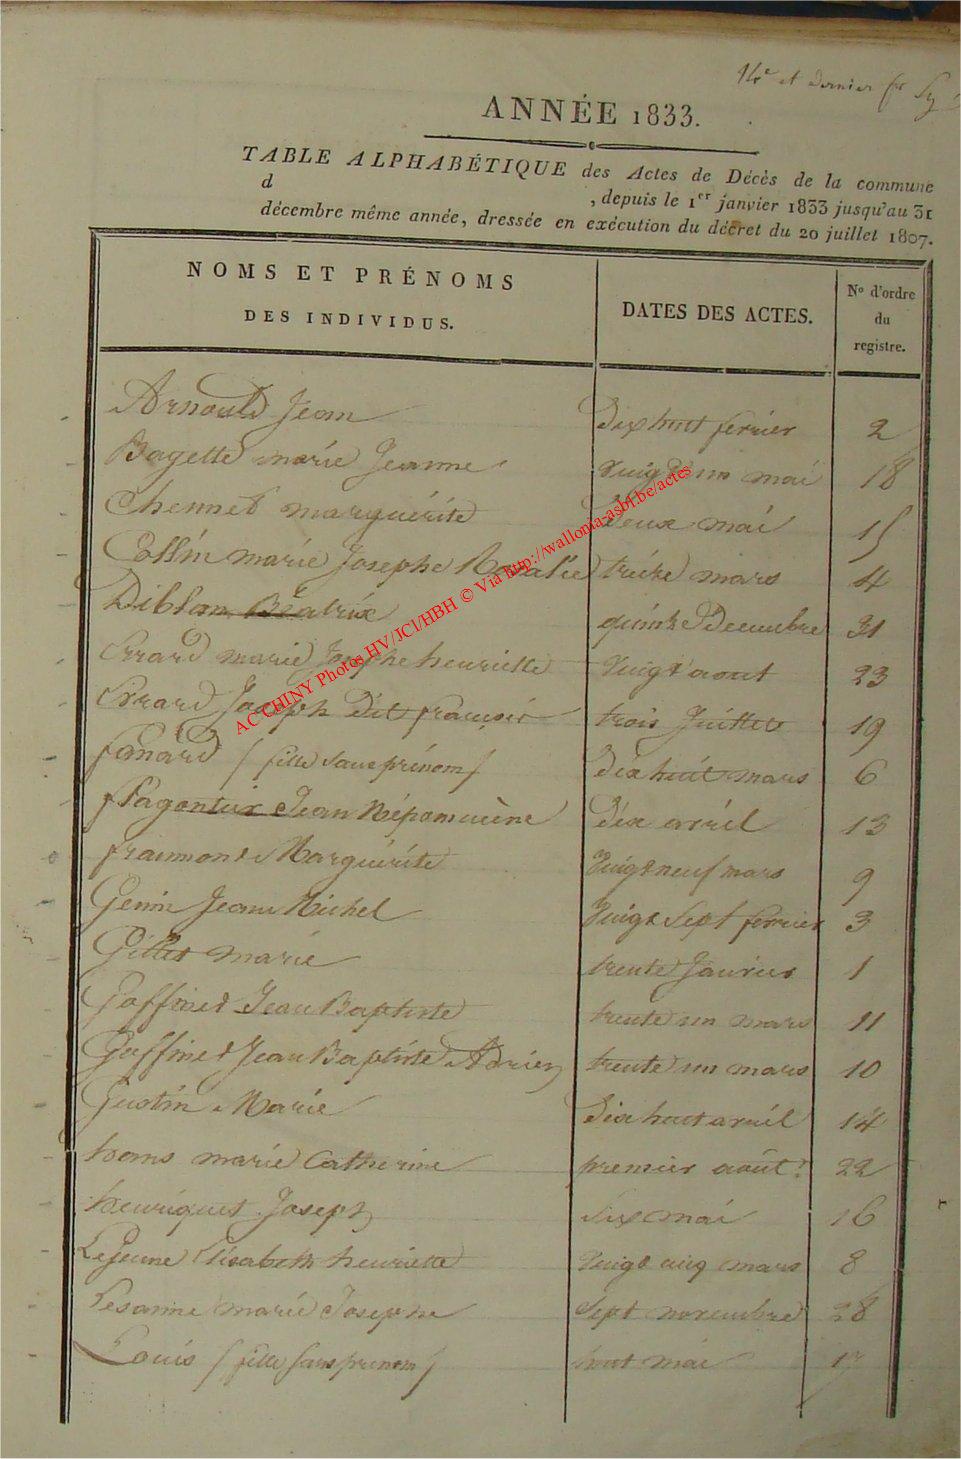 14e et dernier
ANNÉE 1833.
TABLE ALPHABÉTIQUE des Actes de Décès de la commune
d , depuis le 1er janvier 1833 jusqu'au 31
décembre même année, dressée en exécution du décret du 20 juillet 1807.
NOMS ET PRÉNOMS
DES INDIVIDUS.
DATES DES ACTES.
No d'ordre
du
registre.
Arnould Jean dix huit fevrier 2
Bagette marie Jeanne vingt un mai 18
Chennet marguérite deux mai 15
Collin marie Josephe Rosalie treize mars 4
Diblan Béatrix quinze Decembre 31
Errard marie Josephe henriette vingt aout 23
Errard Joseph Dit françois trois Juillet 19
fanard / fille sans prénom / dix huit mars 6
flagontier Jean Népomucène dix avril 13
fraumont Marguérite vingt neuf mars 9
Genin Jean Michel vingt sept fevrier 3
Gillet marie trente Janvier 1
Goffinet Jean Baptiste trente un mars 11
Goffinet Jean Baptiste Adrien trente un mars 10
Gustin Marie dix huit avril 14
hans marie Catherine premier août 22
henriquet Joseph six mai 16
Lejeune Elisabeth henriette vingt cinq mars 8
Lesanne marie Josephe sept novembre 28
Louis / fille sans prenom / huit mai 17
AC CHINY Photos HV/JCl/HBH © Via http://wallonia-asbl.be/actes